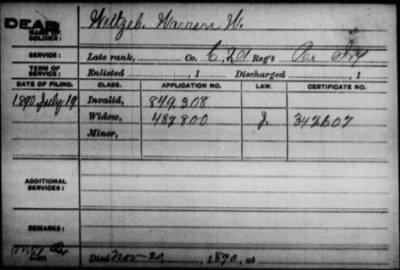 DEAD
NAME OF SOLDIER: Weltzeb. Warren W.
SERVICE: Late rank, Co. C, 201 Reg't Pa Inf
TERM OF SERVICE: Enlisted , 1 Discharged , 1
DATE OF FILING. CLASS. APPLICATION NO. LAW. CERTIFICATE NO.
1890 July 19 Invalid, 849,208
Widow, 487800 J. 342607
Minor,
ADDITIONAL SERVICES:
REMARKS:
Died Nov-20, , 1890, at